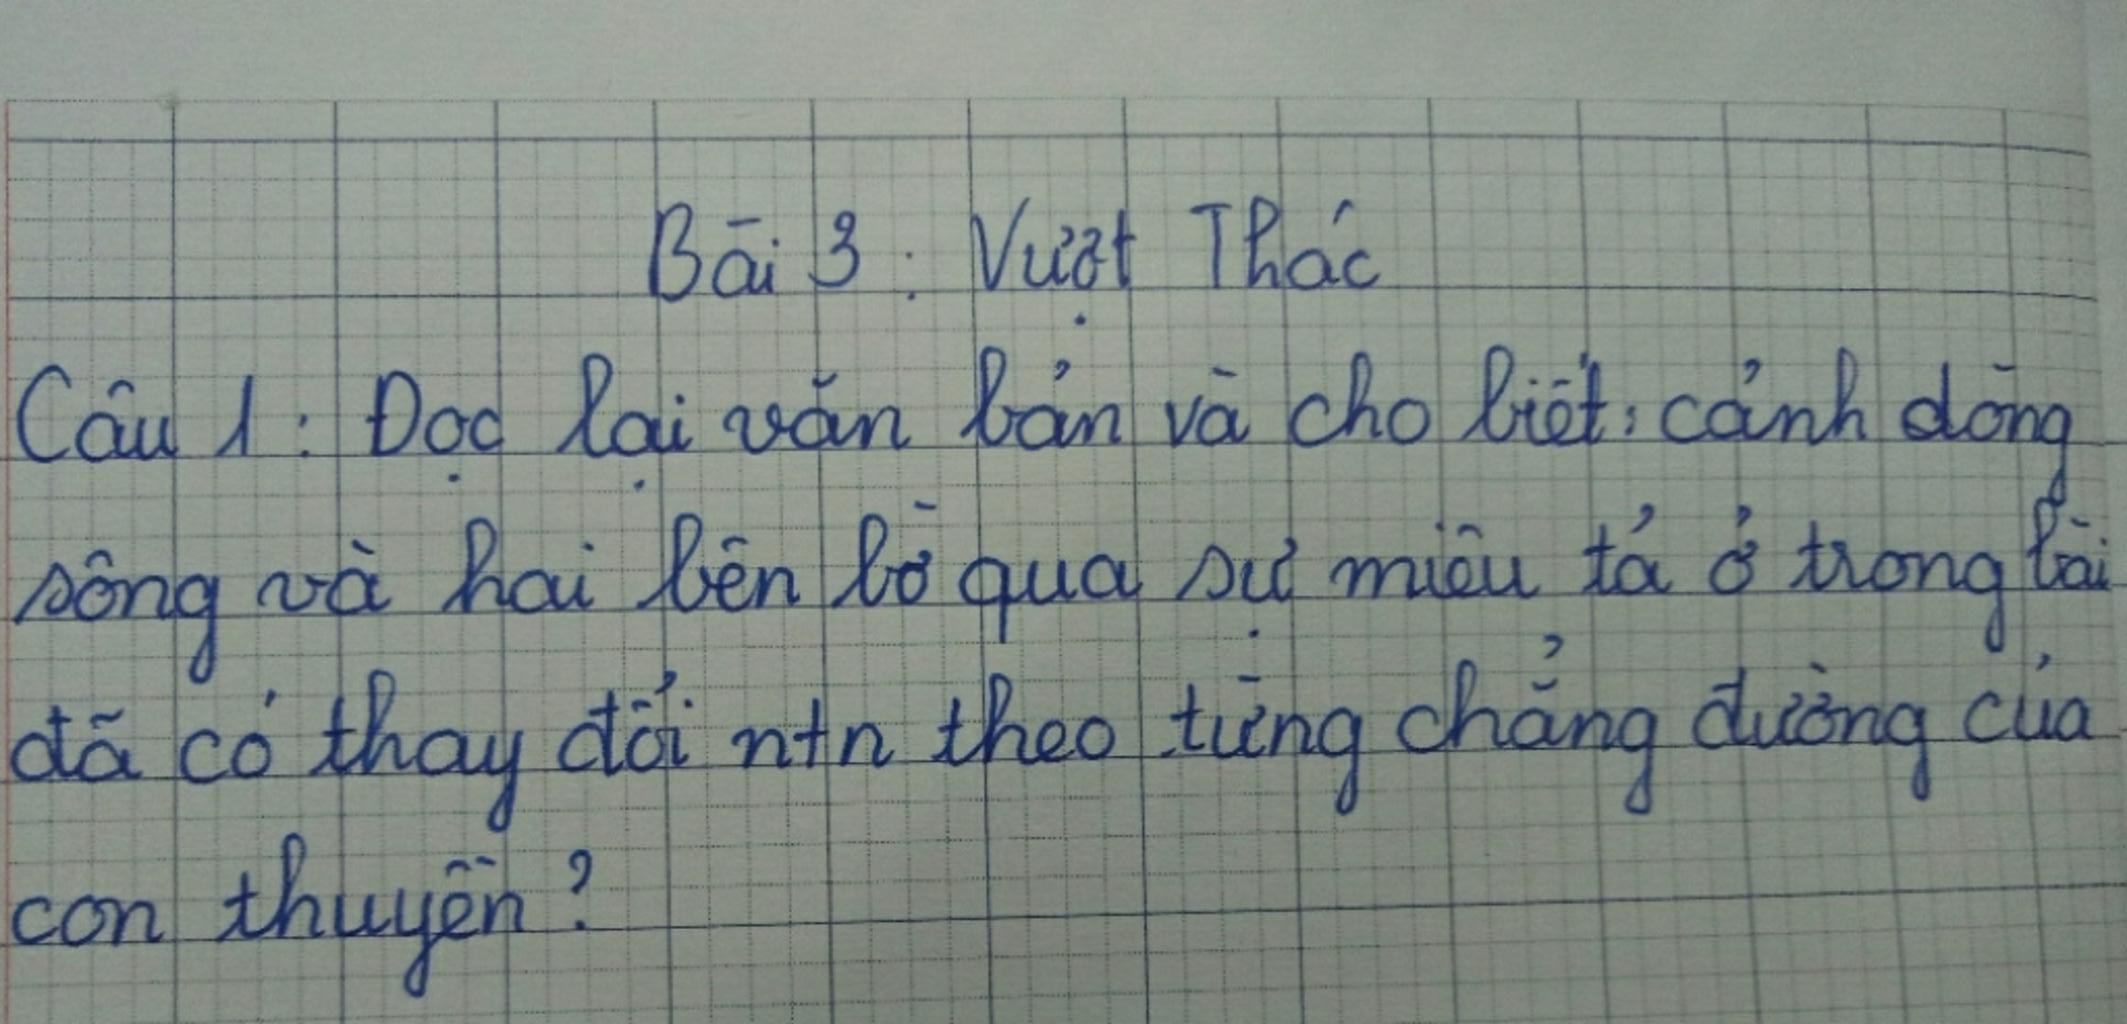 Bài 3: Vượt Thác
Câu 1: Đọc lại văn bản và cho biết: cảnh dòng
sông và hai bên bờ qua sự miêu tả ở trong bài
đã có thay đổi ntn theo từng chẳng đường của
con thuyền?